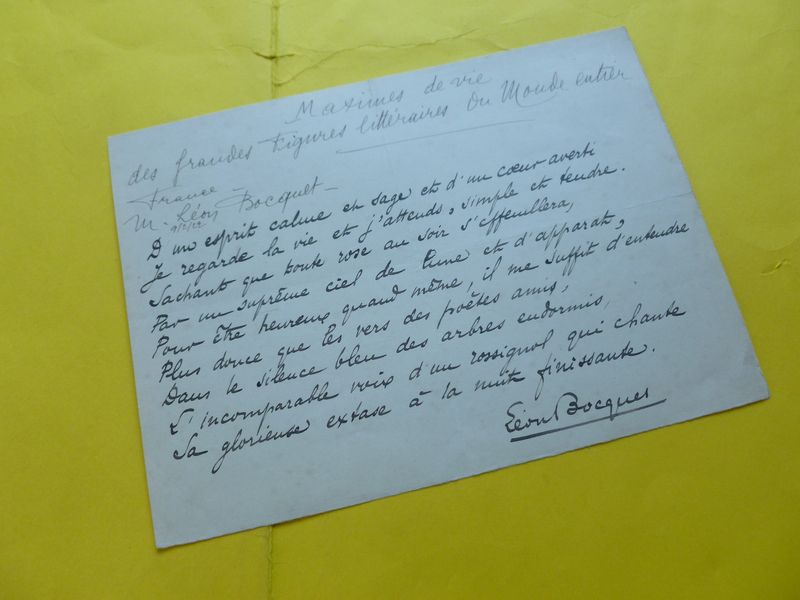 Maximes de vie
des grandes Figures littéraires du Monde entier
France -
M. Léon Bocquet -
D'un esprit calme et sage et d'un cœur averti
Je regarde la vie et j'attends, simple et tendre.
Sachant que toute rose au soir s'effeuillera,
Par un suprême ciel de lune et d'apparat,
Pour être heureux quand même, il me suffit d'entendre
Plus douce que les vers des poètes amis,
Dans le silence bleu des arbres endormis,
L'incomparable voix d'un rossignol qui chante
Sa glorieuse extase à la nuit finissante.
Léon Bocquet